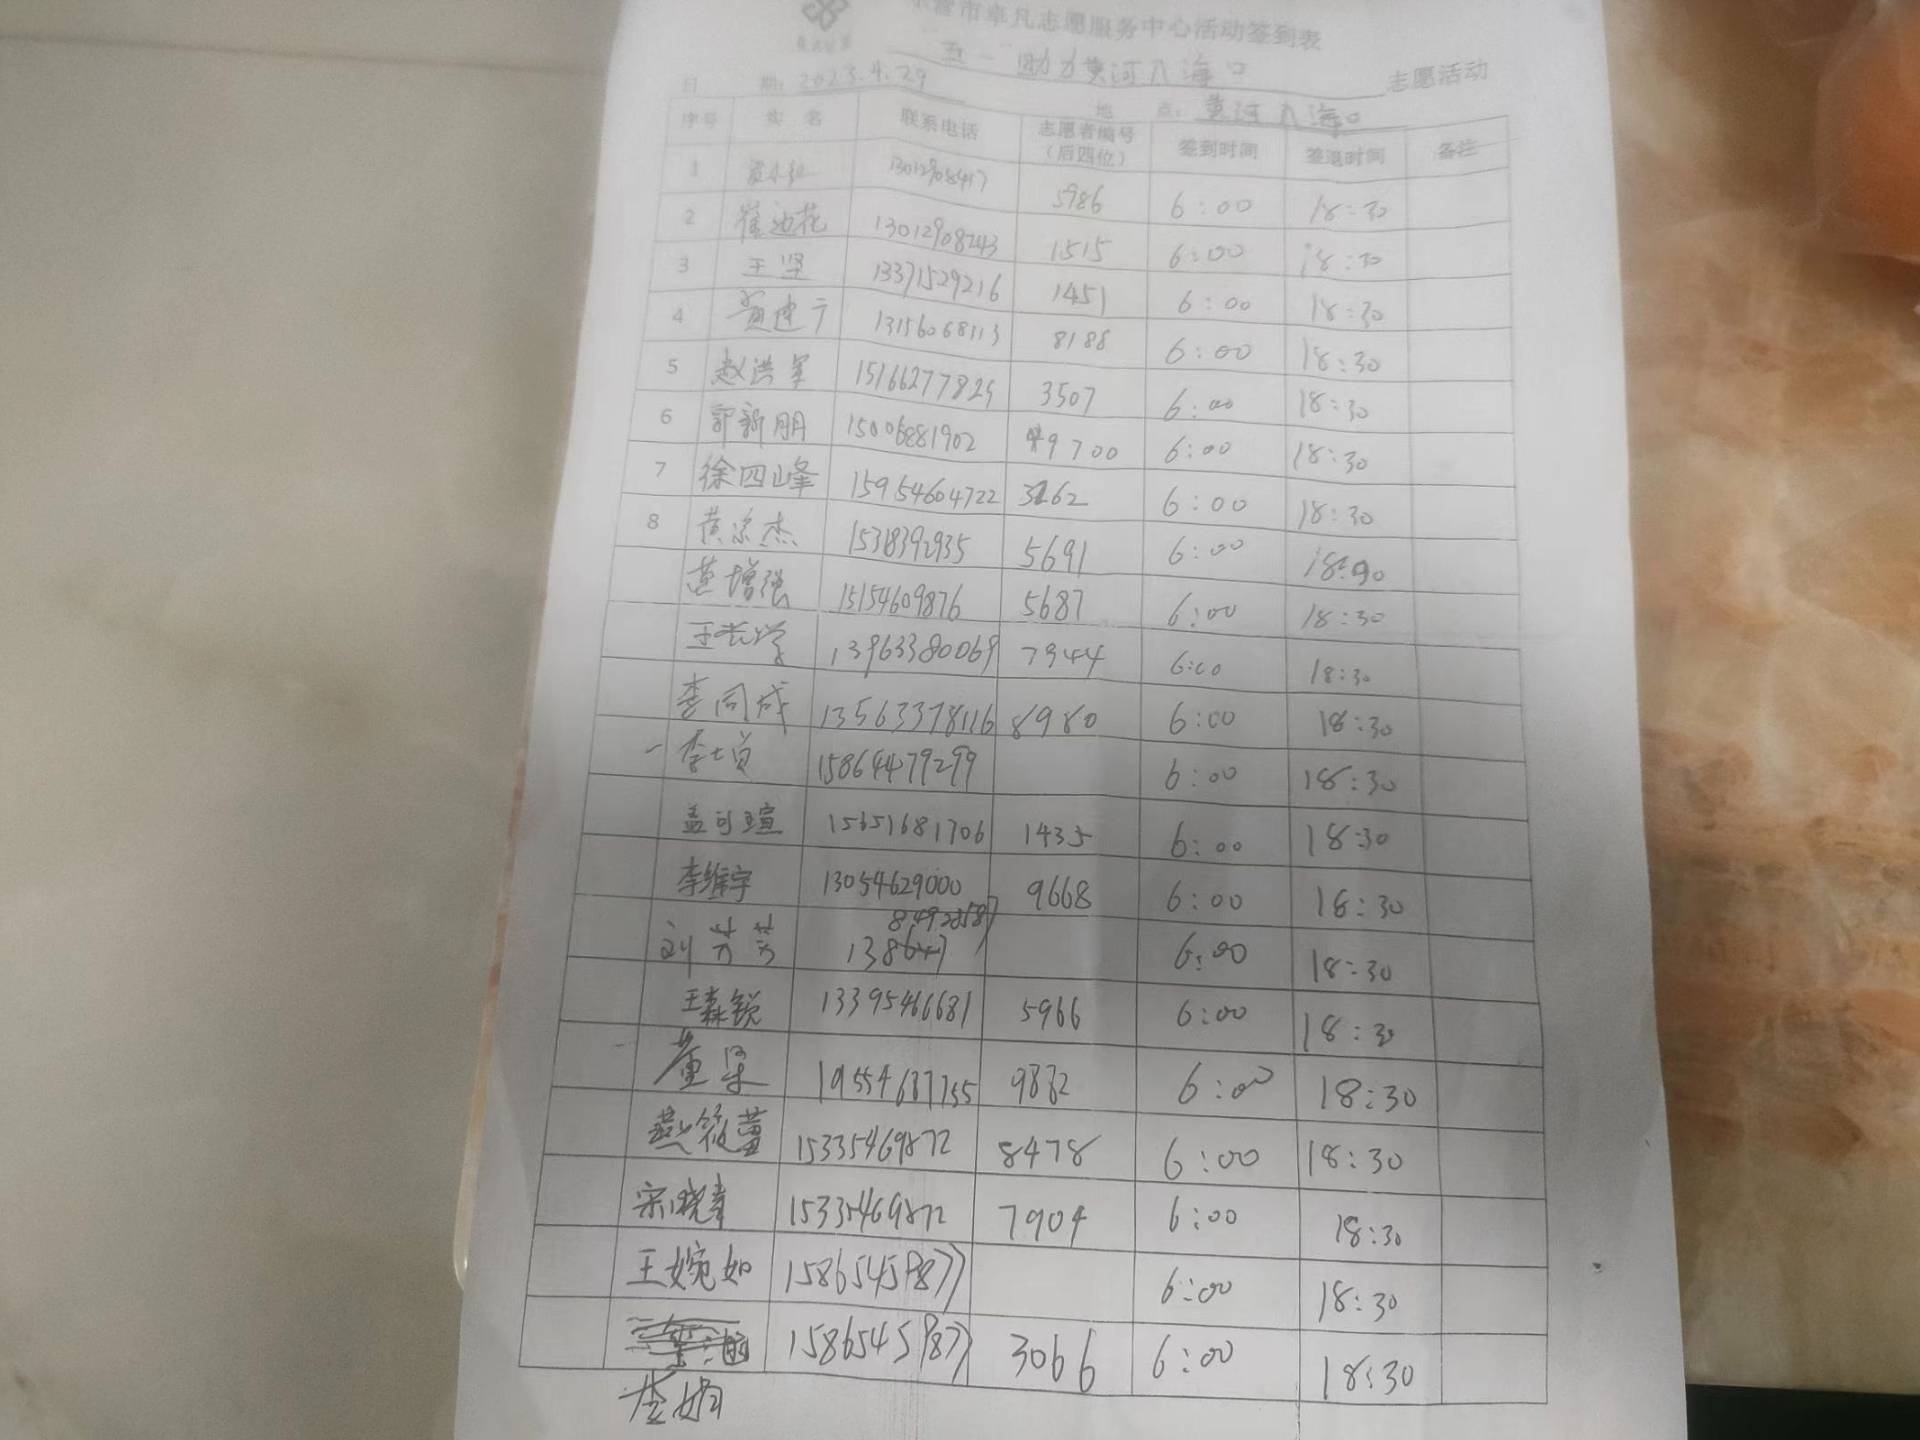 营市卓凡志愿服务中心活动签到表
五一助力黄河入海口 志愿活动
日 期: 2023.4.29 地 点: 黄河入海口
序号 姓 名 联系电话 志愿者编号（后四位） 签到时间 签退时间 备注
1 13012908417 5986 6:00 18:30
2 崔迎花 13012908243 1515 6:00 18:30
3 王坚 13371529216 1451 6:00 18:30
4 贾建宁 13156068113 8188 6:00 18:30
5 赵洪军 15166277825 3507 6:00 18:30
6 郭新朋 15006881902 9700 6:00 18:30
7 徐四峰 15954604722 3262 6:00 18:30
8 黄宗杰 1538392935 5691 6:00
黄增强 15154609876 5687 6:00 18:30
13963380069 7944 6:00 18:30
李同成 13563378116 8980 6:00 18:30
15864479299 6:00 18:30
孟可瑄 15651681706 1435 6:00 18:30
李维宇 13054629000 9668 6:00 18:30
刘芳芳 6:00 18:30
王森锐 13395466681 5966 6:00 18:30
董坚 19554687755 9882 6:00 18:30
燕筱薑 15335469872 8478 6:00 18:30
宋晓青 15335469872 7904 6:00 18:30
王婉如 15865459877 6:00 18:30
15865459877 3066 6:00 18:30
李娟